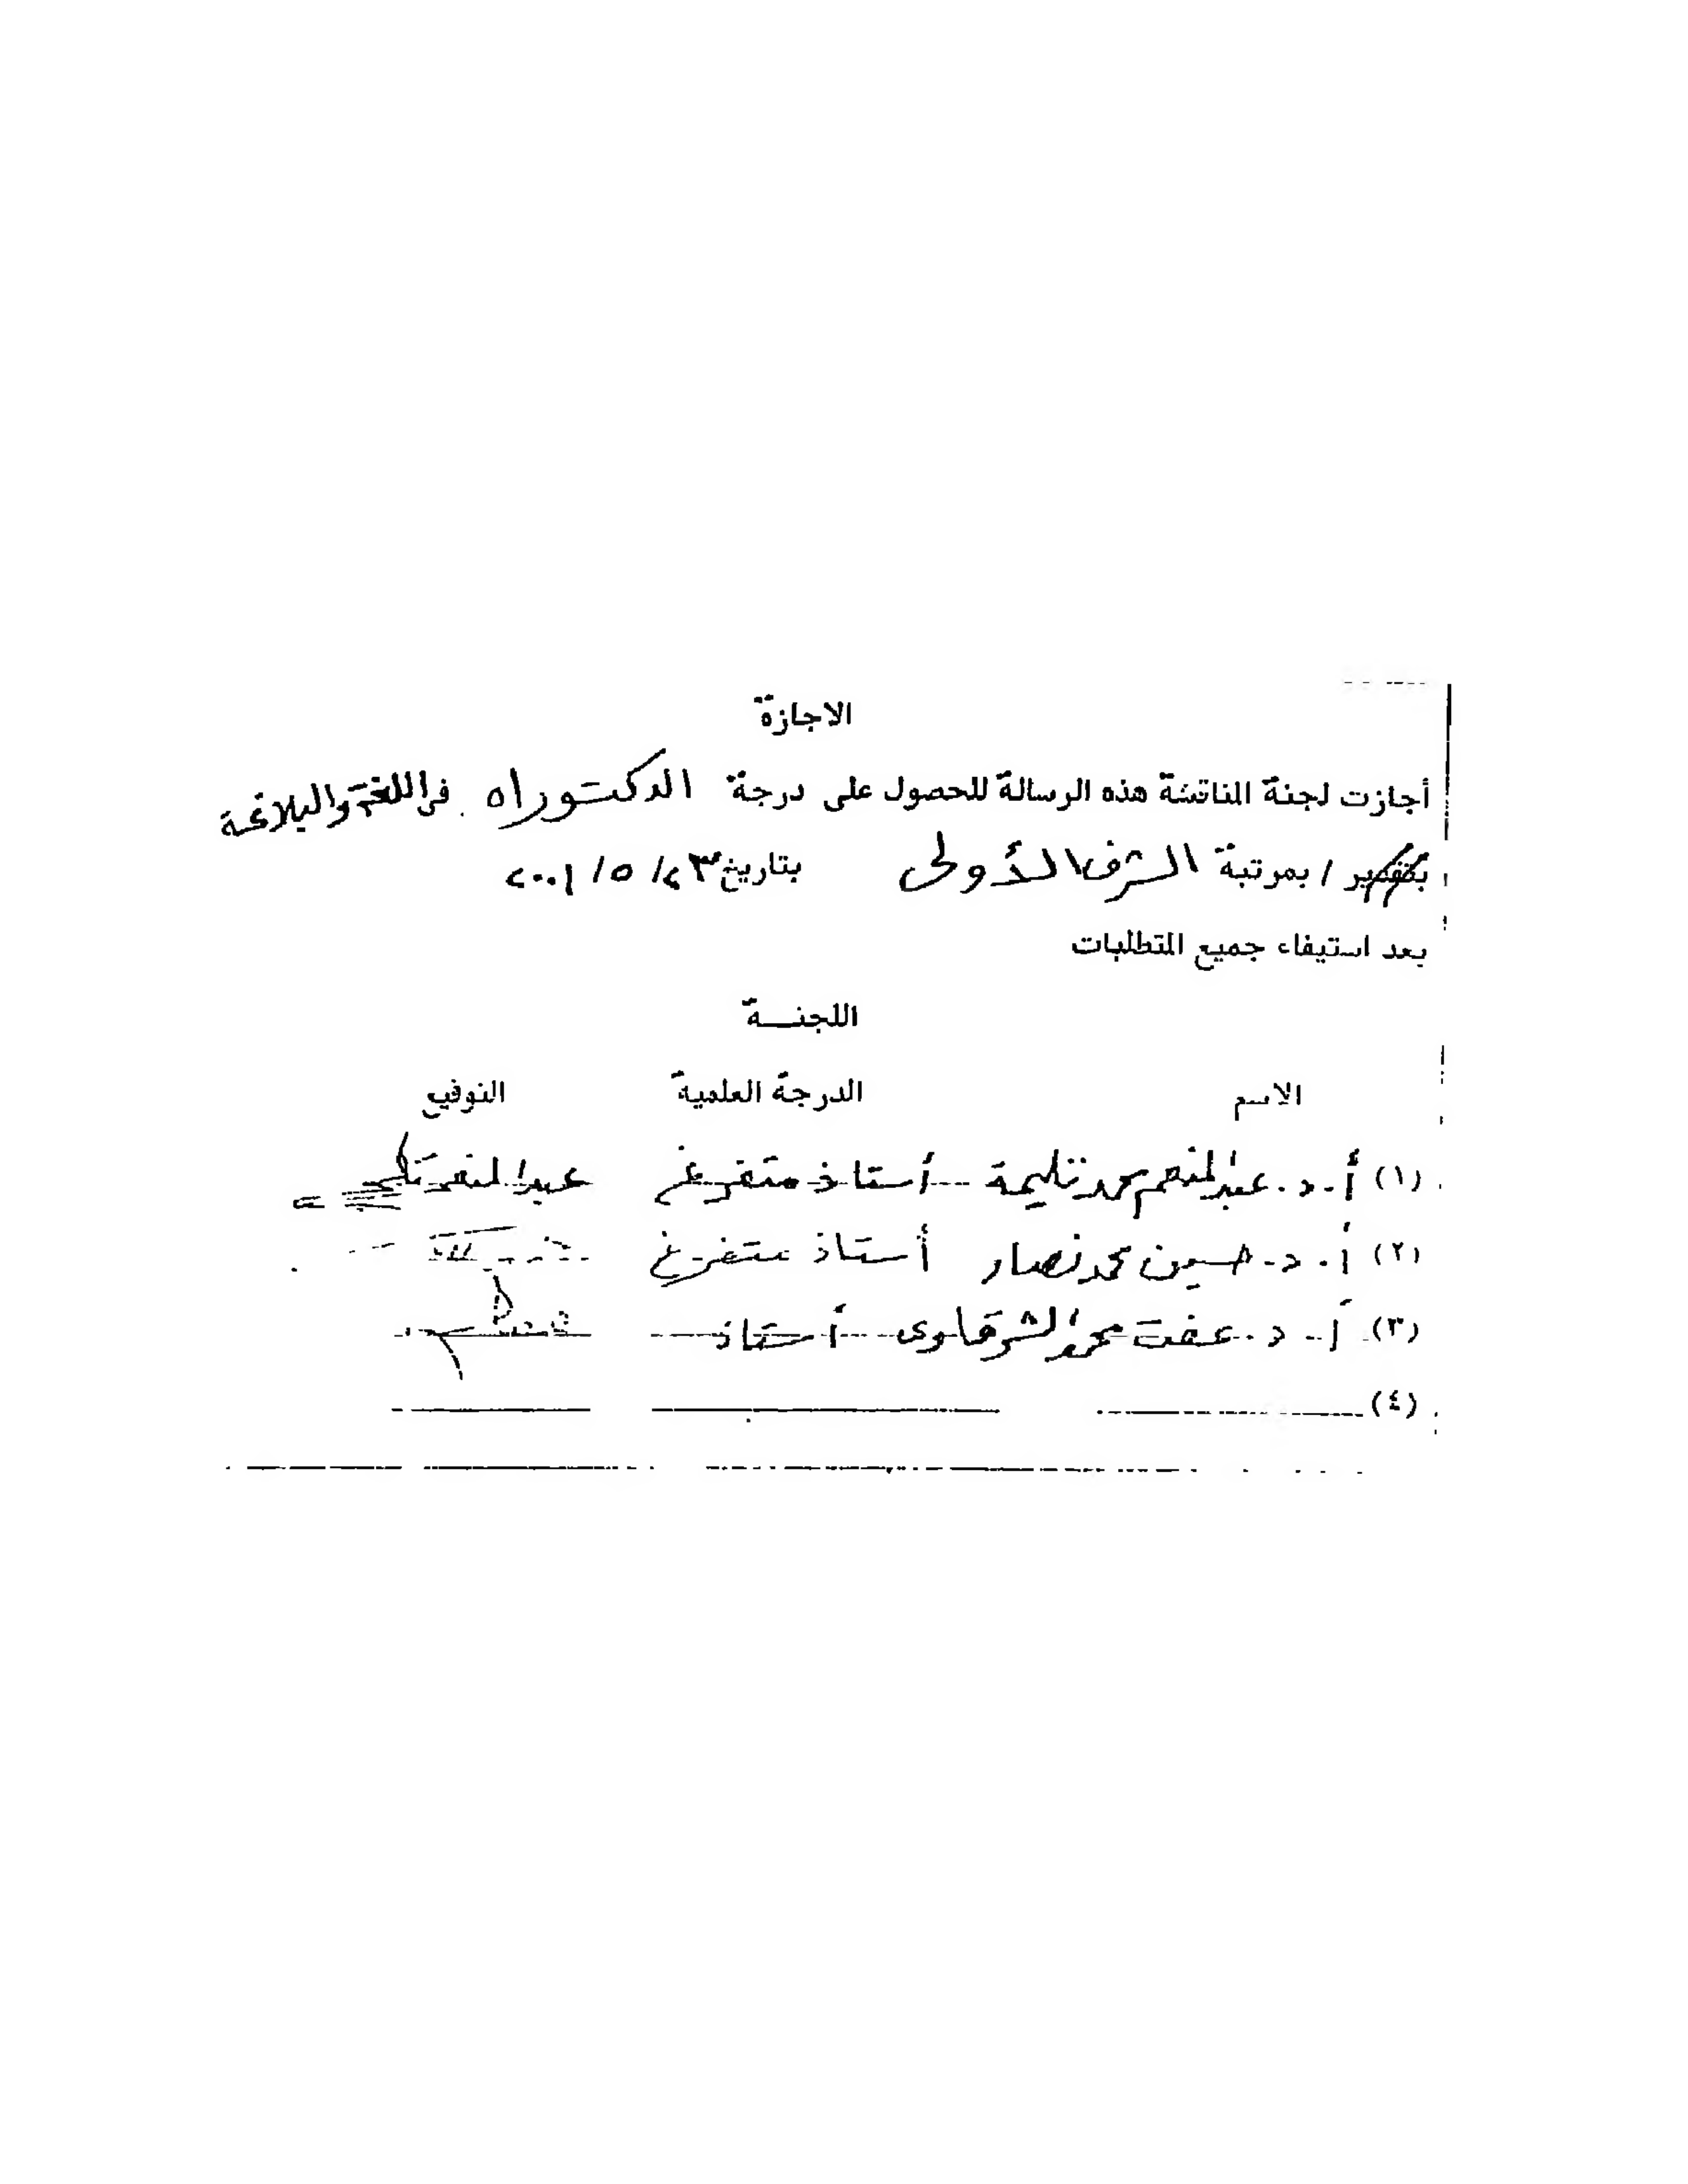 الاجازة
أجازت لجنة المناقشة هذه الرسالة للحصول على درجة الدكتوراه في اللغة والبلاغة
بتقدير / بمرتبة الشرف الأولى بتاريخ ٢٣/ ٥/ ٢٠٠١
بعد استيفاء جميع المتطلبات
اللجنــة
الاسم الدرجة العلمية التوقيع
(١) أ.د. عبد المنعم محمد تليمة أستاذ متفرغ عبد المنعم تليمة
(٢) أ.د. حسين محمد نصار أستاذ متفرغ
(٣) أ.د. عفت محمد الشرقاوى أستاذ
(٤)